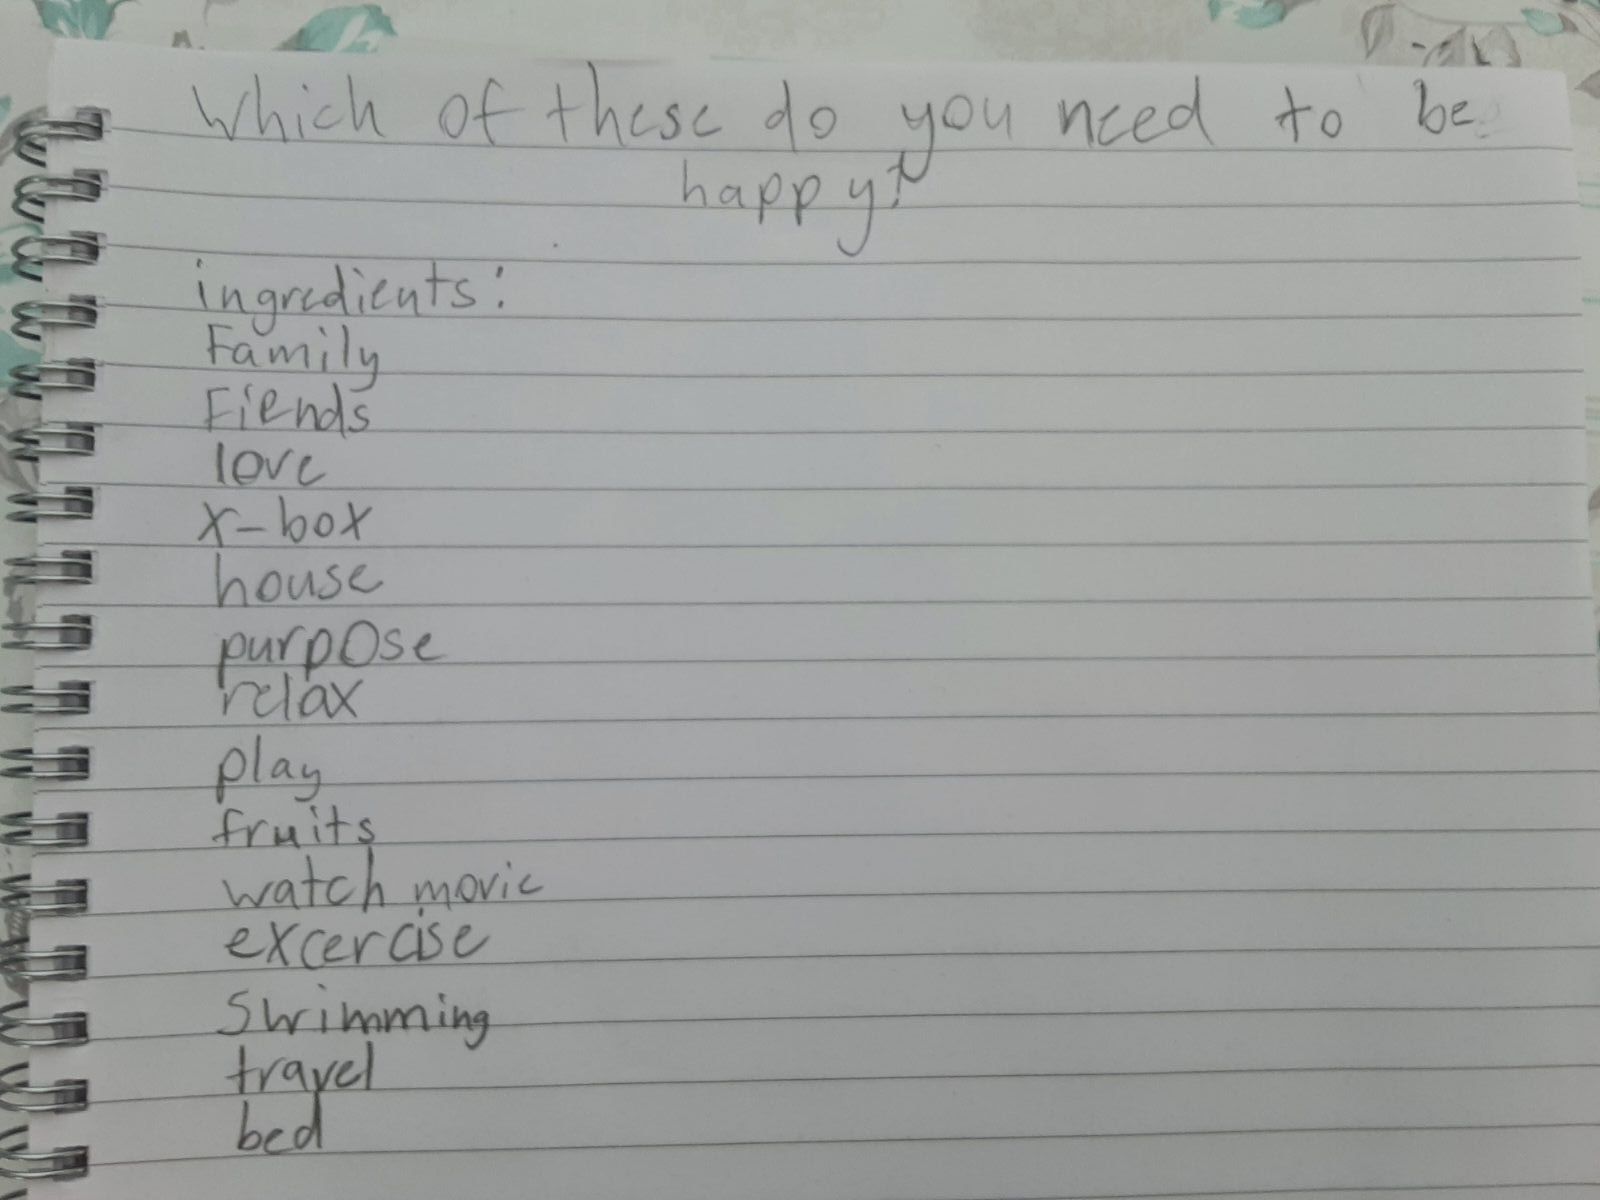 Which of these do you need to be
happy?
ingredients:
Family
Fiends
love
x-box
house
purpose
relax
play
fruits
watch movie
excercise
Swimming
travel
bed